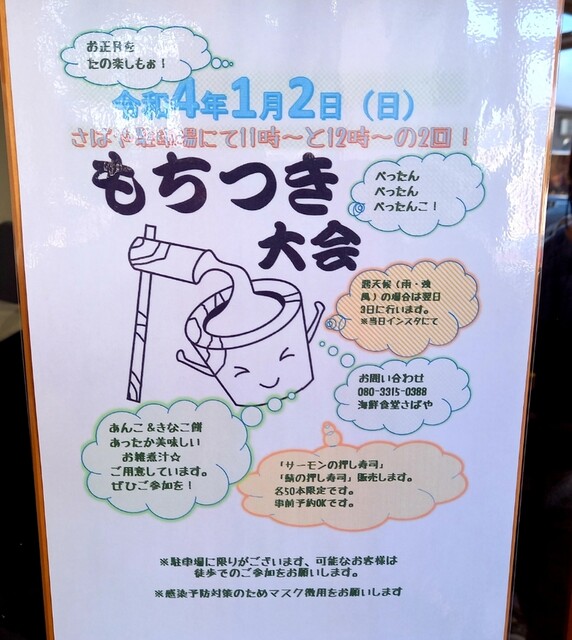 お正月を
たの楽しもぉ！
令和4年1月2日（日）
さばや駐車場にて11時〜と12時〜の2回！
もちつき
大会
ぺったん
ぺったん
ぺったんこ！
悪天候（雨・強
風）の場合は翌日
3日に行います。
※当日インスタにて
お問い合わせ
080-3315-0388
海鮮食堂さばや
あんこ＆きなこ餅
あったか美味しい
お雑煮汁☆
ご用意しています。
ぜひご参加を！
「サーモンの押し寿司」
「鯖の押し寿司」販売します。
各50本限定です。
事前予約OKです。
※駐車場に限りがございます、可能なお客様は
徒歩でのご参加をお願いします。
※感染予防対策のためマスク徴用をお願いします